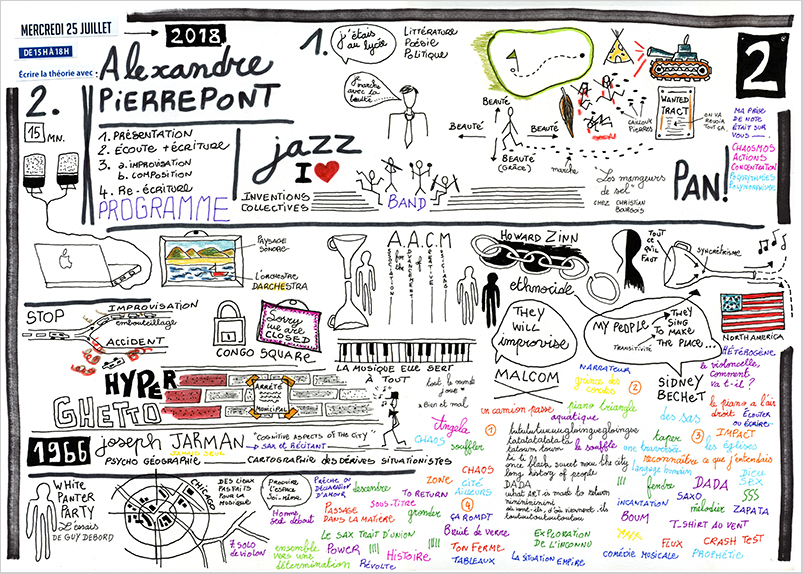 MERCREDI 25 JUILLET
DE 15H À 18H
2018
Écrire la théorie avec :
Alexandre
PIERREPONT
2.
15 MN.
1. PRÉSENTATION
2. ÉCOUTE + ÉCRITURE
3. a. IMPROVISATION
b. COMPOSITION
4. RE-ÉCRITURE
PROGRAMME
jazz
I
INVENTIONS
COLLECTIVES
BAND
1.
j'étais
au lycée
LITTÉRATURE
POÉSIE
POLITIQUE
je
marche
avec la
BEAUTÉ
BEAUTÉ
BEAUTÉ
BEAUTÉ
(GRÂCE)
marche
CAILLOUX
PIERRES
WANTED
TRACT
ON VA
REVOIR
TOUT ÇA.
Les mangeurs
de sel
CHEZ CHRISTIAN
BOURGOIS
PAN!
2
MA PRISE
DE NOTE
ÉTAIT SUR
VOUS
CHAOSMOS
ACTIONS
CONCENTRATION
PAYSAGE
SONORE
L'ORCHESTRE
DARCHESTRA
A.A.C.M
ASSOCIATION
for the
ADVANCEMENT
OF
CREATIVE
MUSICIANS
HOWARD ZINN
ethnocide
TOUT
CE QU'IL
FAUT
syncrétisme
NORTH AMERICA
STOP
IMPROVISATION
embouteillage
ACCIDENT
Sorry
we are
CLOSED
CONGO SQUARE
LA MUSIQUE ELLE SERT
À TOUT
THEY
WILL
improvise
MALCOM
MY PEOPLE
TRANSITIVITÉ
THEY
SING
TO MAKE
THE PLACE...
SIDNEY
BECHET
HYPER
GHETTO
ARRÊTÉ
MUNICIPAL
1966
joseph JARMAN
"COGNITIVE ASPECTS OF THE CITY"
SAX ET RÉCITANT
PSYCHO GÉOGRAPHIE
CARTOGRAPHIE DES DÉRIVES SITUATIONISTES
WHITE
PANTER
PARTY
L'essais
DE GUY DEBORD
DES LIEUX
RESTREINTS
POUR LA
MUSIQUE
CHICAGO
PRODUIRE
L'ESPACE
soi-même
7 solo
de violon
tout le monde
joue
Bien et mal
Angela
CHAOS
souffler
PRÊCHE OU
DÉCLARATION
D'AMOUR
descendre
ZONE
TO RETURN
CHAOS
CITÉ
AILLEURS
Homme
seul debout
PASSAGE
DANS LA MATIÈRE
SOUS-TITRE
gronder
4
ÇA ROMPT
LE SAX TRAIT D'UNION
Bruit de verre
ensemble
vers une
détermination
POWER
!!!!
Histoire
RÉVOLTE
TON FERME
TABLEAUX
EXPLORATION
DE L'INCONNU
LA SITUATION EMPIRE
NARRATEUR
2
un camion passe
1
piano triangle
aquatique
le souffle
long history of people
DADA
what ART is made to return
des sas
taper
une traversée
reconnaître ce que j'entendais
langage humain
3
IMPACT
les églises
HÉTÉROGÈNE
le violoncelle,
comment
va t-il?
le piano a l'air
droit
ÉCOUTER
OU ÉCRIRE
DIEU
SEX
!!!
fendre
DADA
SAXO
$$$
INCANTATION
mélodier
ZAPATA
BOUM
T-SHIRT AU VENT
FLUX
CRASH TEST
COMÉDIE MUSICALE
PROPHÉTIE